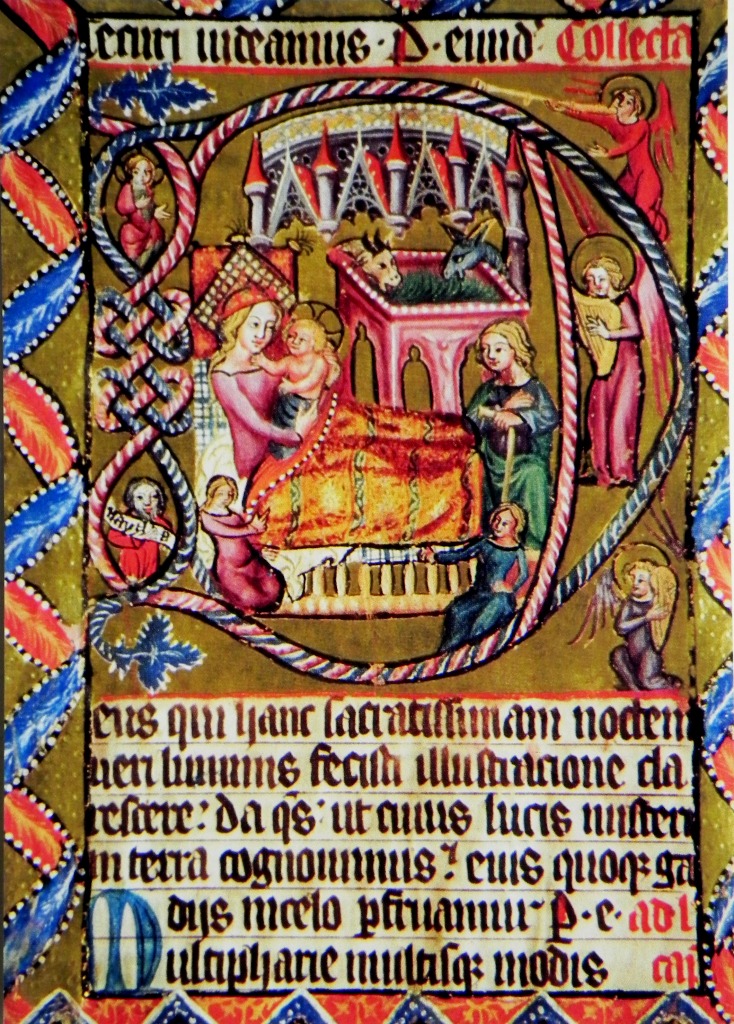 ecuri uideamus · P · eiund' Collecta
D
eus qui hanc sacratissimam noctem
ueri luminis fecisti illustracione cla
rescere: da qs ut cuius lucis misteri
in terra cognouimus: eius quoq ga
dijs in celo pfruamur P · e · ad l
Multipharie multisq modis cai